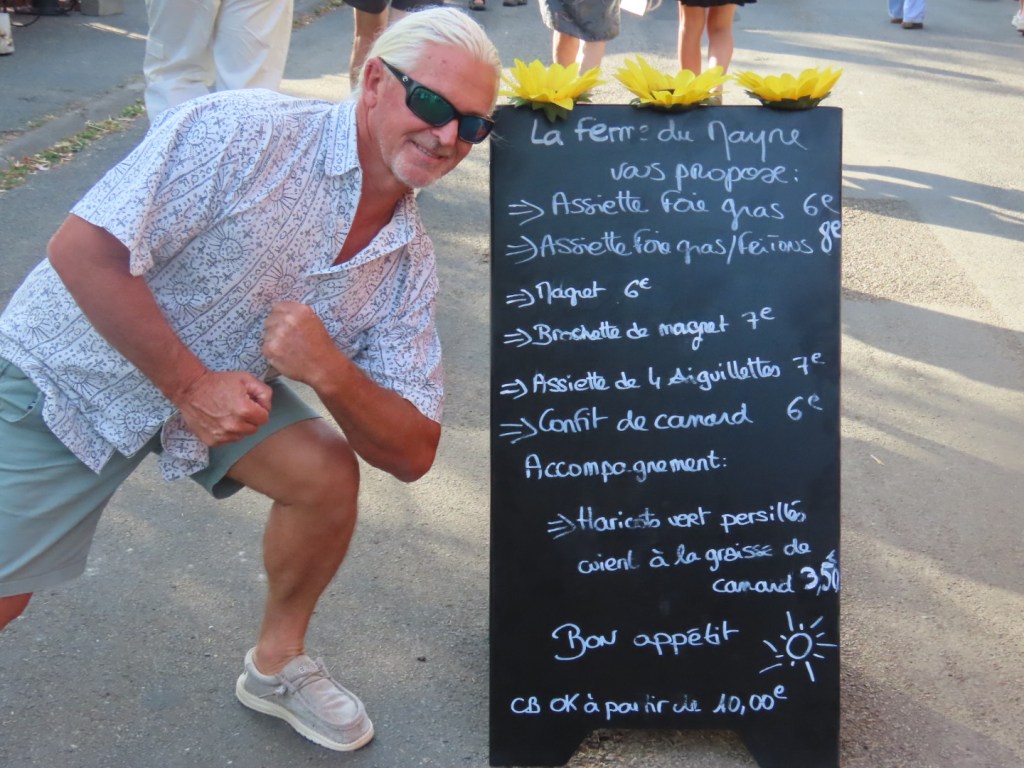 La Ferme du Mayne
vous propose:
=> Assiette Foie gras 6€
=> Assiette Foie gras/Fritons 8€
=> Magret 6€
=> Brochette de magret 7€
=> Assiette de 4 Aiguillettes 7€
=> Confit de canard 6€
Accompagnement:
=> Haricots vert persillés
cuient à la graisse de
canard 3,50€
Bon appétit
CB OK à partir de 10,00€